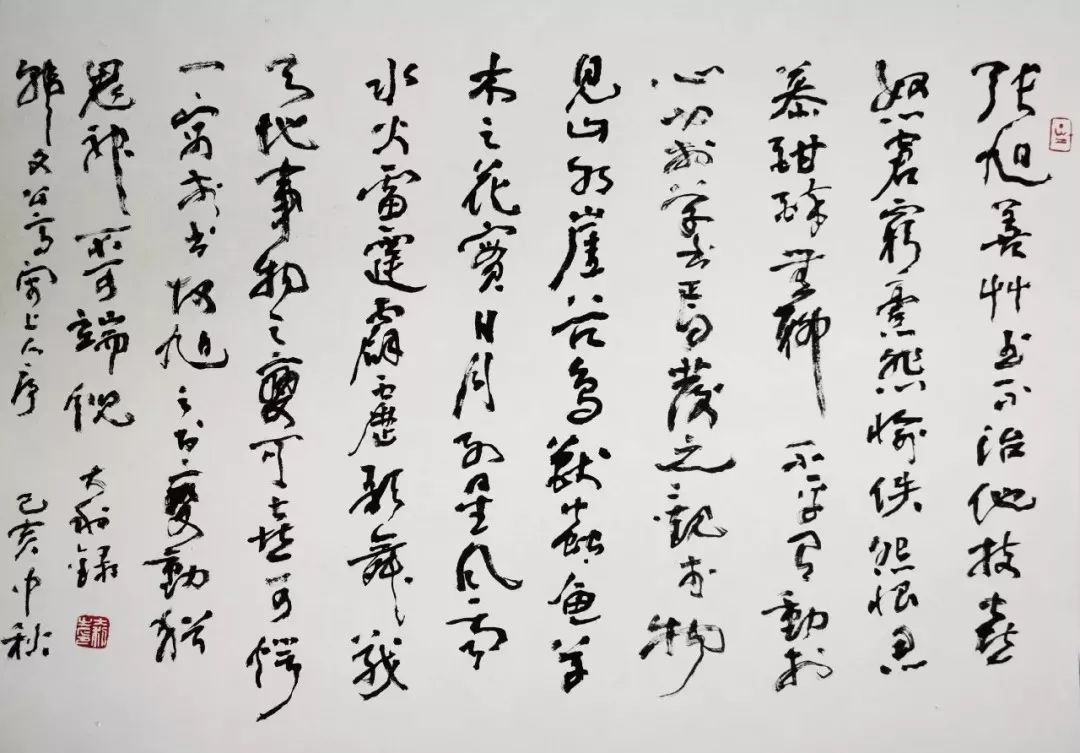 張旭善艸書不治他技喜
怒窘窮憂悲愉佚怨恨思
慕酣醉無聊不平有動於
心必於草書焉發之觀於物
見山水崖谷鳥獸蟲魚草
木之花實日月列星風雨
水火雷霆霹靂歌舞戰
天地事物之變可喜可愕
一寓於書故旭之書變動猶
鬼神不可端倪 大錄
韓文公高閑上人序 己亥中秋